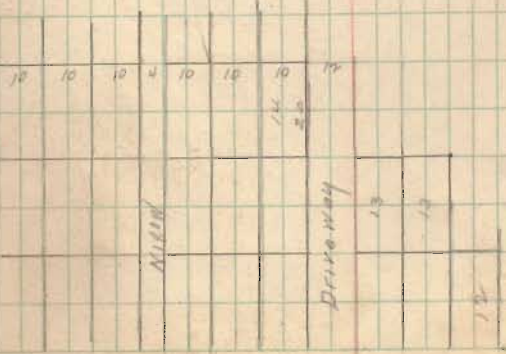 10 10 10 4 10 10 10 12
14
20
Driveway
13
12
12